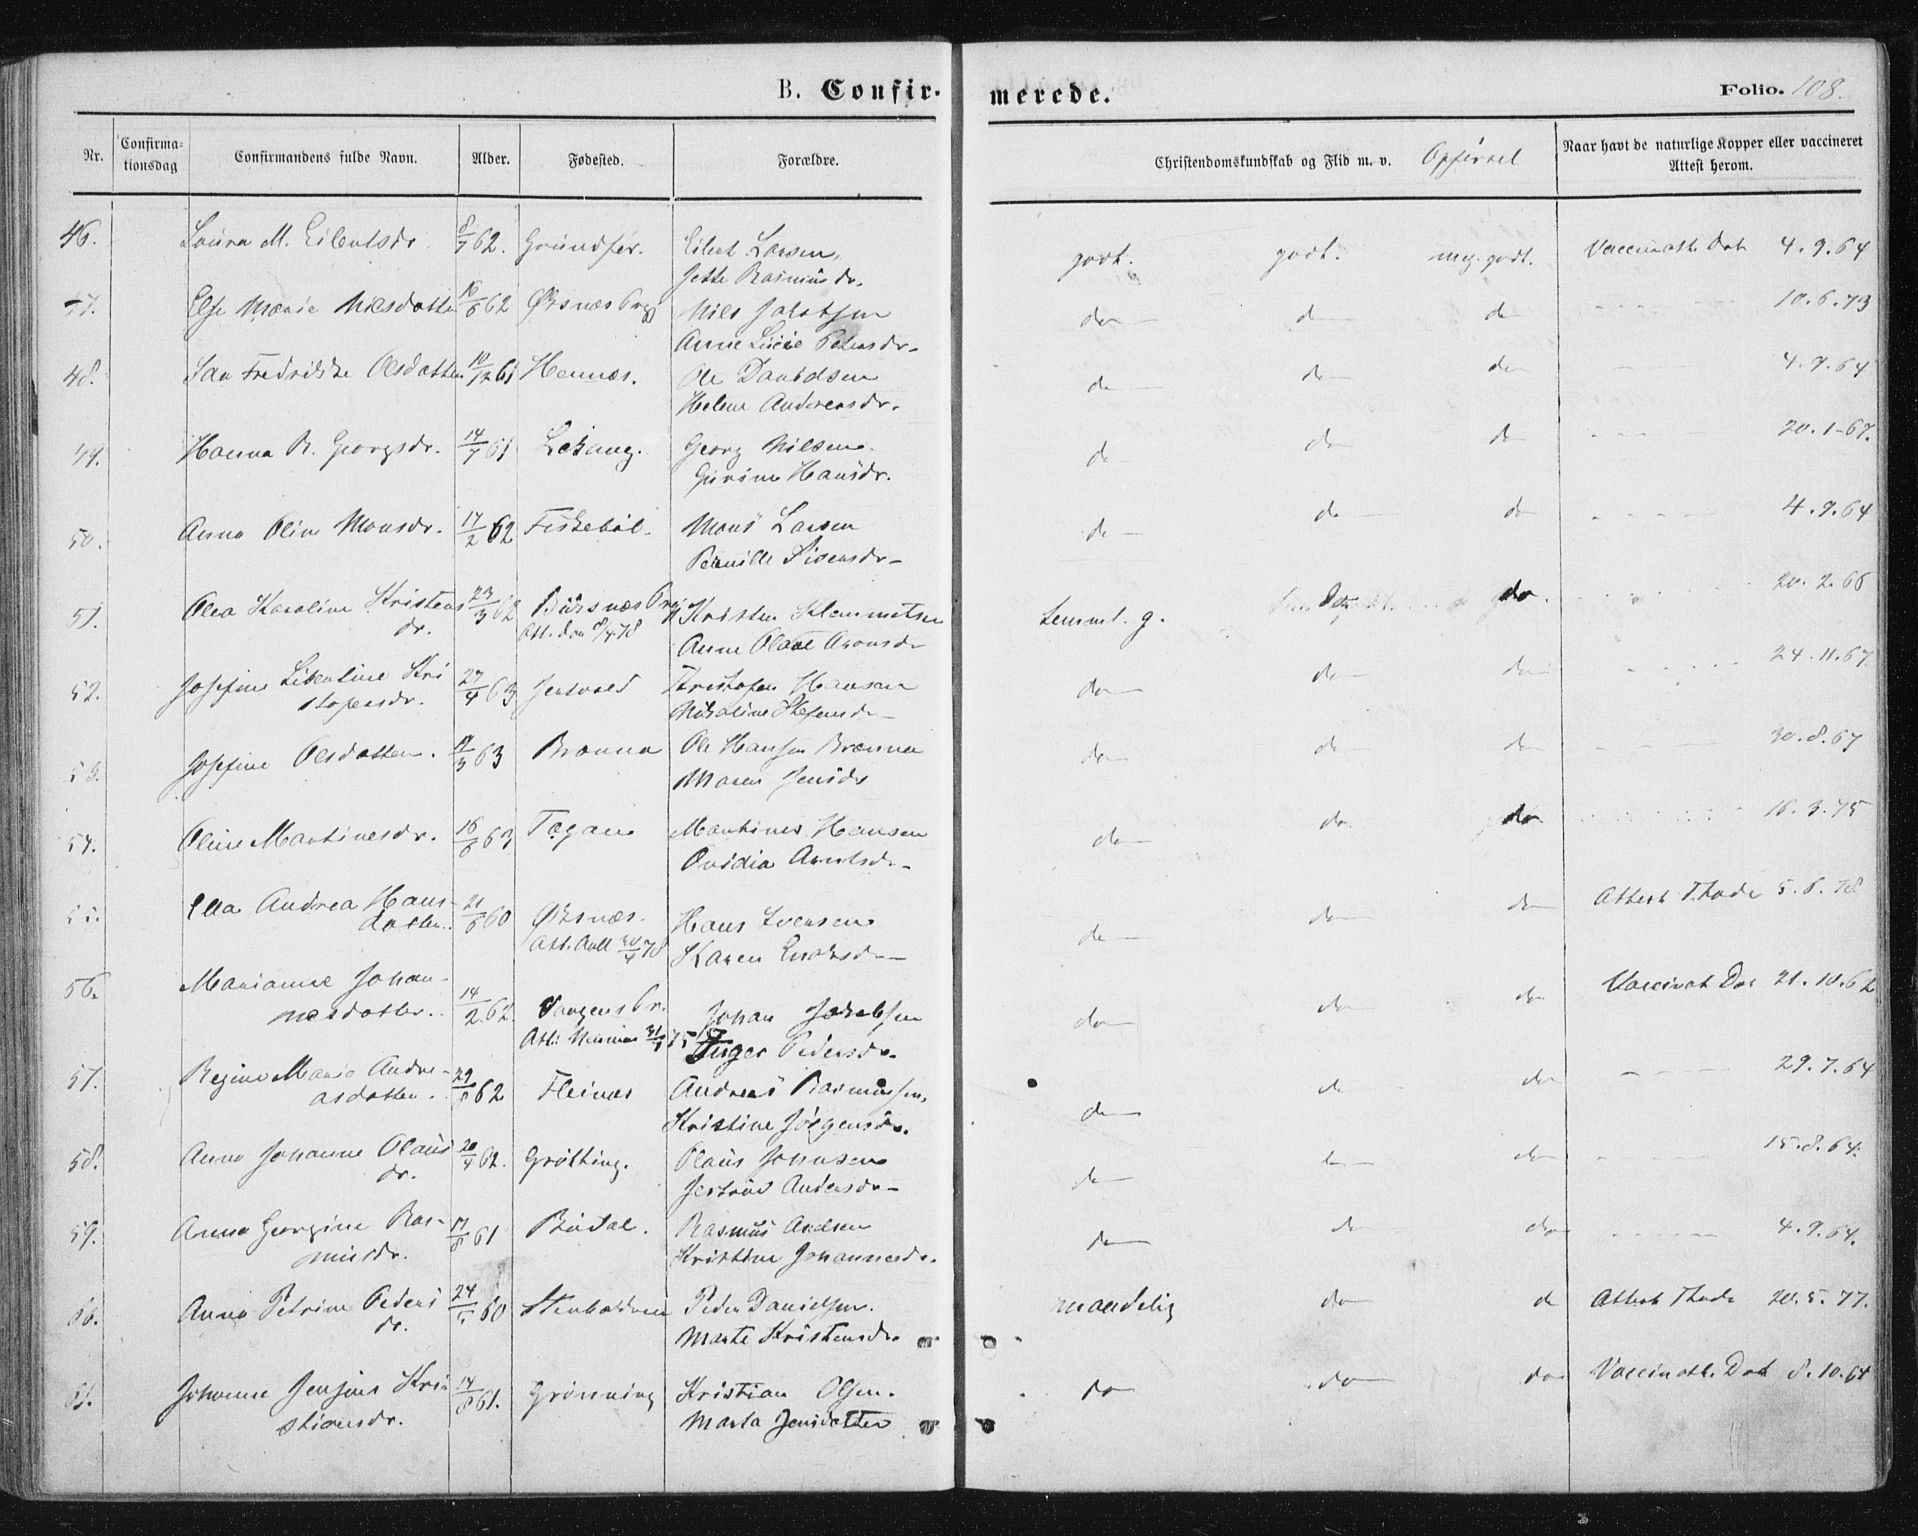 B. Confir- merede. Folio. 108.
Nr. Confirma-tionsdag Confirmandens fulde Navn. Alder. Fødested. Forældre. Christendomskundskab og Flid m. v. Opførsel Naar havt de naturlige Kopper eller vaccineret Attest herom.
46. Laura M. Eilertsdr. 8/7 62. Grundfør. Eilert Larsen, godt. godt. meg. godt. Vaccinatt. Dat 4.9.64
Jette Rasmusdr.
47. Else Marie Nilsdatter 10/6 62 Øksnæs Prgj Nils Jakobsen do do do 10.6.73
Anne Lucie Petersdr.
48. Ida Fredrikke Olsdatter 10/12 61 Hennæs. Ole Davidsen do do do 4.9.64
Helene Andreasdr.
49. Hanna R. Georgsdr. 14/7 61 Lekang. Georg Nilsen. do do do 20.1-67.
Gurine Hansdr.
50. Anna Oline Monsdr. 17/2 62 Fiskebøl. Mons Larsen do do do 4.9.64
Pernille Siversdr.
51. Olea Karoline Kristens 23/3 62 Buksnæs Prgj Kristen Klemmetsen temml. g. do. 20.2.66
dr. Att. den 8/4 78 Anne Olave Aronsdr
52. Josefine Libertine Kri 27/4 63 Jentvold Kristofer Hansen do do do 24.11.67.
stofersdr. Nikoline
53. Josefine Olsdatter. 63 Brønna Ole Hansen Brænna do do do 30.8.67
Maren Jensdr
54. Oline Martinesdr. 16/6 63 Tøgan Martines Hansen do do do 16.3.75
Ovidia Arntsdr
55. Andrea Hans- 21/6 60 Øksnæs. Hans Iversen do do do Attest Thode 5.6.78.
datter. Att. 30/4 78 Karen Enoksdr
56. Marianne Johan- 14/2 62. Vaagens Pr. Johan Jakobsen do do do Vaccinat. Dat 21.10.62
nesdatter. Att: 75 Inger Pedersdr.
57. Regine Marie Andre- 29/8 62 Fleinæs Andreas Rasmussen, do do do 29.7.64
asdatter. Kristine Jørgensdr.
58. Anne Johanne Olaus 20/4 62. Grøtting. Olaus Johnsen do do do 15.8.64.
dr. Jertrud Andersdr
59. Anne Georgine Ras- 17/8 61 Budal. Rasmus Andsen do do do 4.9.64.
musdr. Kristine Johannesdr.
60. Anna Petrine Peders 24/5 60 Stenbakken Peder Danielsen. maadelig do do Attest Thode 20.5.77.
dr. Marte Kristensdr.
61. Johanne Jensine Kri- 14/8 61. Grønning Kristian Olsen. do do do Vaccinatt. Dat 8.10.64
stiansdr. Marta Jensdatter